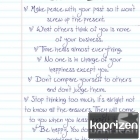 Make peace with your past so it won't
screw up the present.
What others think of you is none
of your business.
Time heals almost everything.
No one is in charge of your
happiness except you.
Don't compare yourself to others
and don't judge them.
Stop thinking too much, it's alright not
to know all the answers. They will come
to you when you least
Be happy. You
koprizen